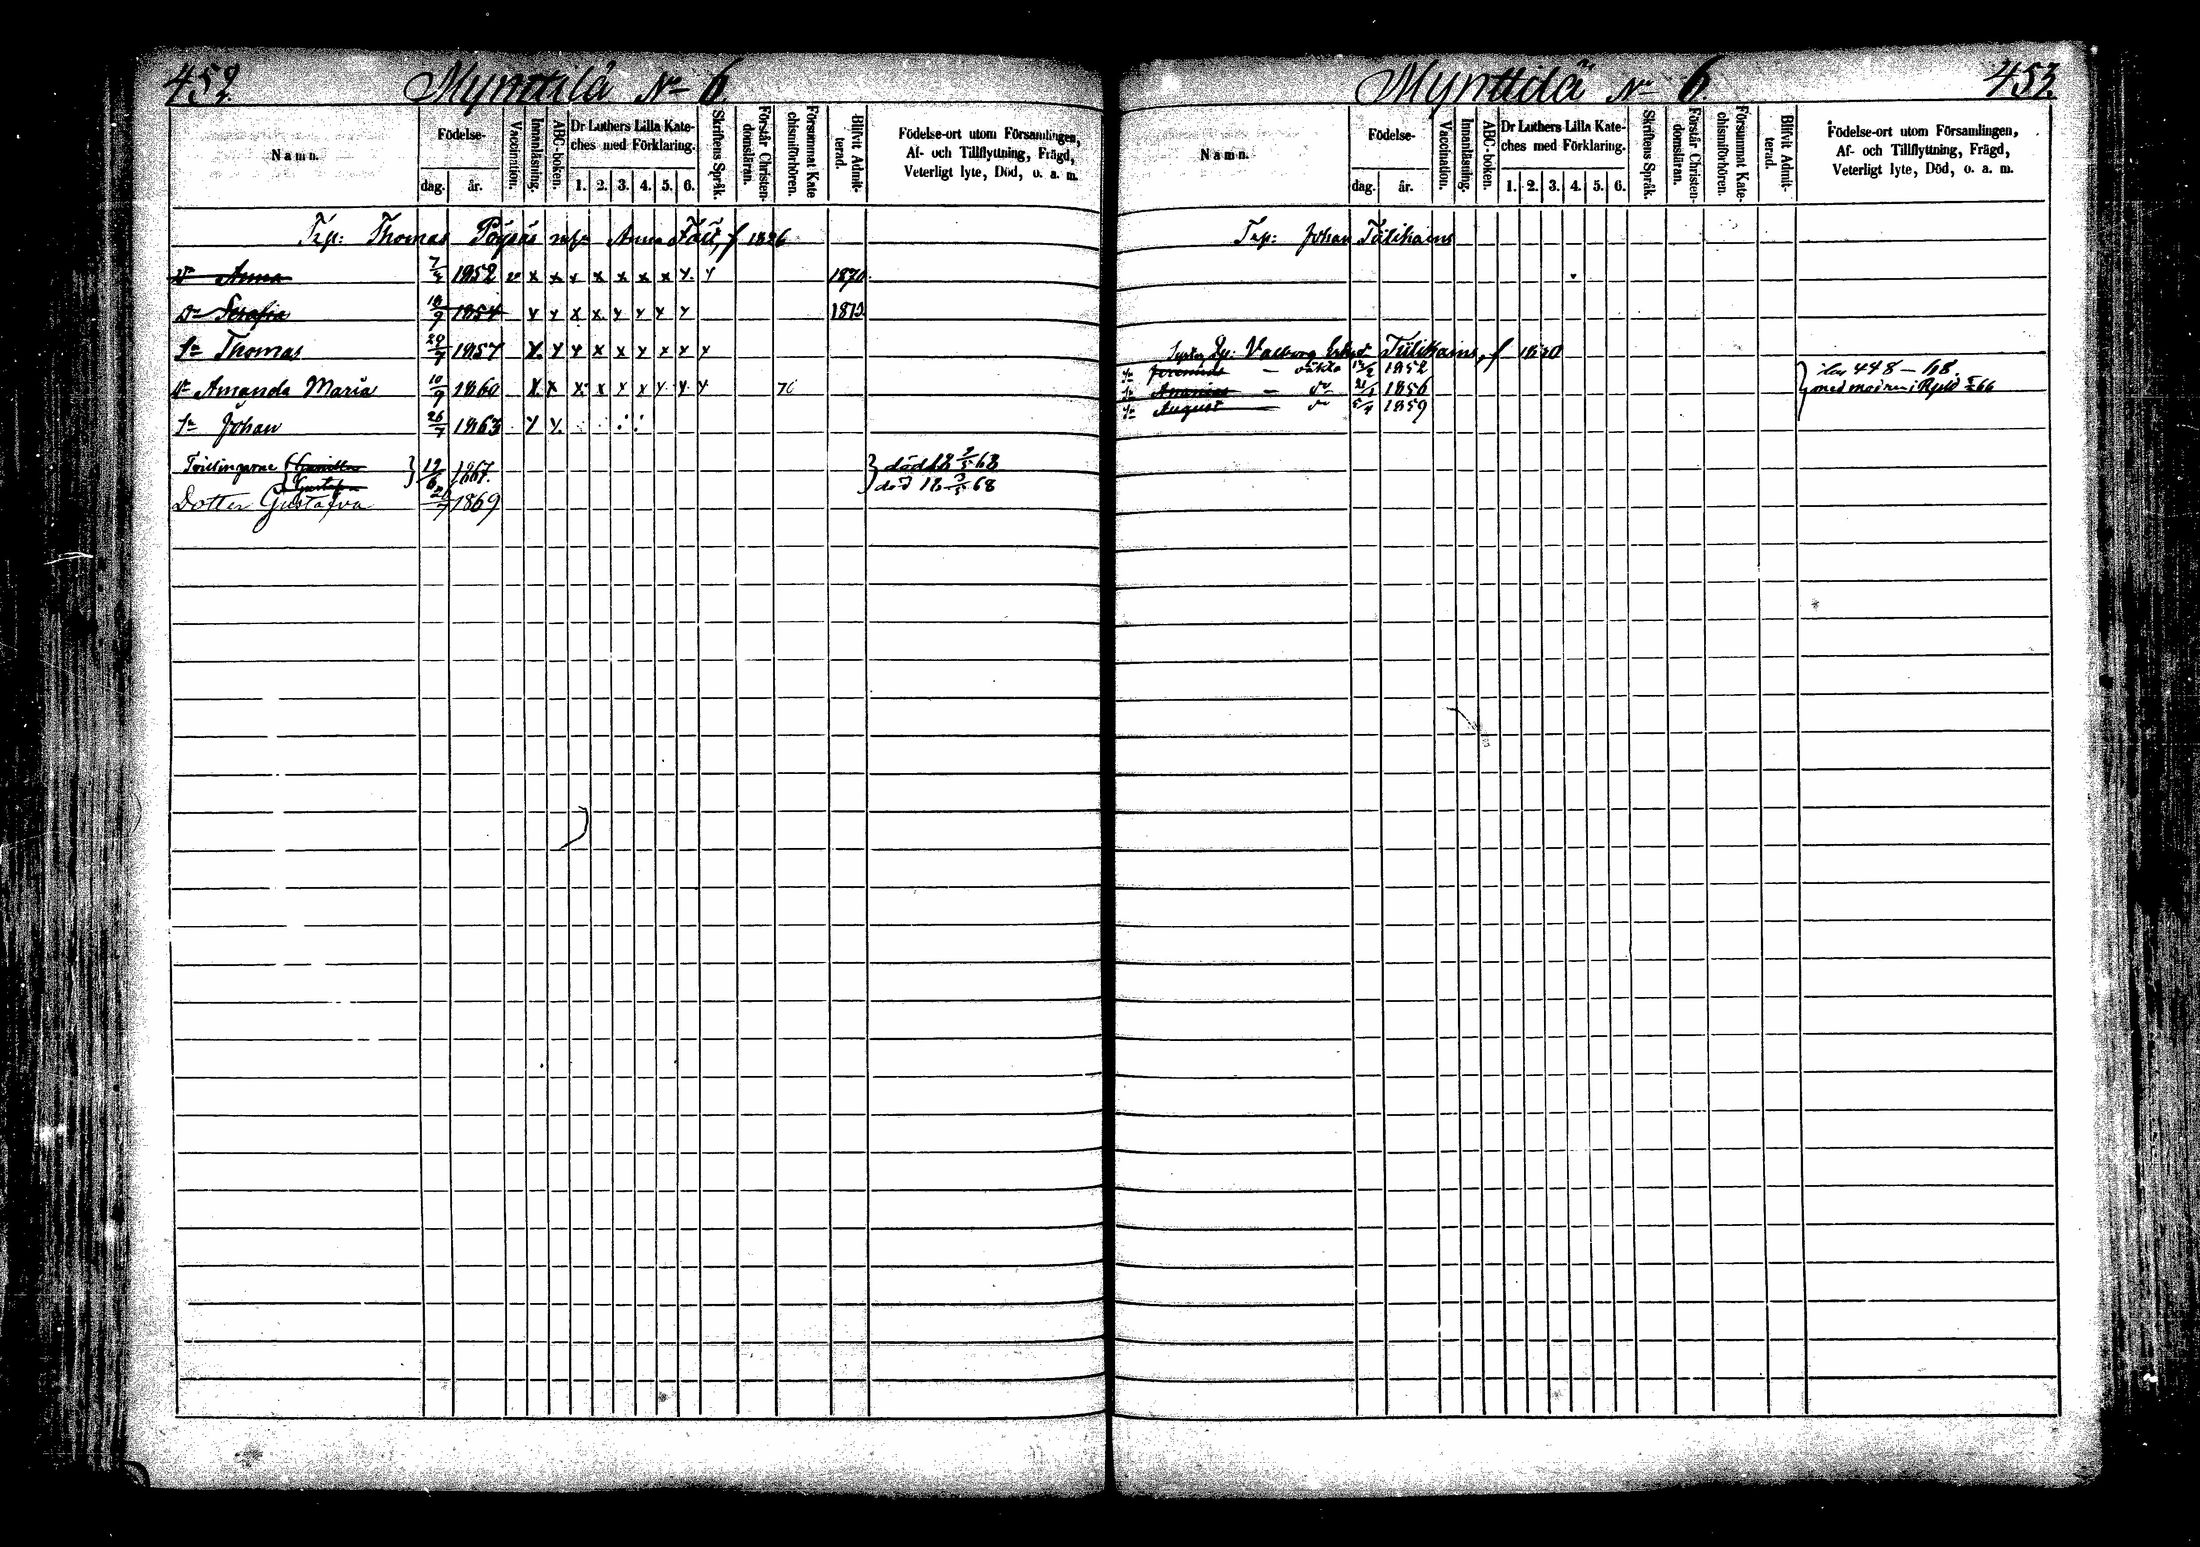 452.
Mynttilä No 6.
Namn.
Födelse-
dag. år.
Vaccination.
Innanläsning.
ABC-boken.
Dr Luthers Lilla Kate-
ches med Förklaring.
1. 2. 3. 4. 5. 6.
Skriftens Språk.
Förstår Christen-
domsläran.
Försummat Kate
chismiförhören.
Blifvit Admit-
terad.
Födelse-ort utom Församlingen,
Af- och Tillflyttning, Frägd,
Veterligt lyte, Död, o. a. m.
Thomas Pöysäs Anna f 1826
Dr Anna 7/4 1852 v x x x x x x x x y 1870.
Dr Serafia 18/9 1854 x x x x x x x x 1873.
Sn Thomas 29/7 1857 x x x x x x x x x
Dr Amanda Maria 10/9 1860 x x x x x x x x x 70
Sn Johan 26/7 1863 x x
Tvillingarne 12/6 1867. död 12 2/5 68
Gustafva död 12 3/5 68
Dotter Gustafva 21/7 1869
453.
Mynttilä No 6.
Namn.
Födelse-
dag. år.
Vaccination.
Innanläsning.
ABC-boken.
Dr Luthers Lilla Kate-
ches med Förklaring.
1. 2. 3. 4. 5. 6.
Skriftens Språk.
Förstår Christen-
domsläran.
Försummat Kate-
chismiförhören.
Blifvit Admit-
terad.
Födelse-ort utom Församlingen,
Af- och Tillflyttning, Frägd,
Veterligt lyte, Död, o. a. m.
Johan Tulikains
Valborg Tulikains, f 1830
Sn Jeremias — oäkta 1852 448 — 68.
Sn Ananias — do 21/1 1856 med modren i 66
Sn August — do 5/4 1859